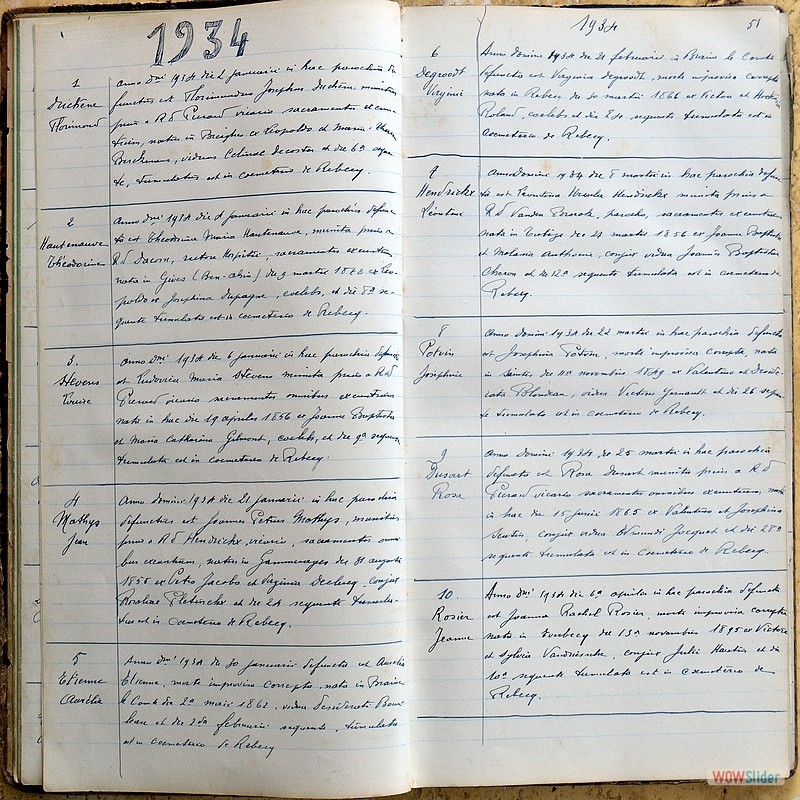 1934
1
Duchêne
Florimond
anno dni 1934 die 2 januarii in hac parochia de
functus est Florimundus Josephus Duchêne munitus
prius a Rd Picard vicario sacramentis
natus in ex Leopoldo et Maria
viduus et die 6a
tumulatus est in coemeterio de Rebecq.
2
Hautenauve
Théodorine
Anno dni 1934 die januarii in hac parochia defunc
ta est Theodorina Maria Hautenauve, munita prius a
Rd rectore hospitii, sacramentis
nata in Gives (Ben-Ahin) die 9 martii ex Leo
poldo et Josephina caelebs, et die 8a se-
quente tumulata est in coemeterio de Rebecq.
3.
Stevens
Louise
anno dni 1934 die 6 januarii in hac parochia defuncta
est Ludovica Maria Stevens munita prius a Rd
Picard vicario sacramentis omnibus
nata in hac die 19 aprilis 1856 ex Joanne Baptista
et Maria Catharina Gilmont, caelebs, et die 9a sequente
tumulata est in coemeterio de Rebecq.
4
Mathys
Jean
Anno domini 1934 die 21 januarii in hac parochia
defunctus est Joannes Petrus Mathys, munitus
prius a Rd Hendrickx, vicario, sacramentis omni
bus natus in Gammerages die 31 augusti
1856 ex Petro Jacobo et Virginia Declercq conjux
Rosaliae et die 24 sequente tumula-
tus est in coemeterio de Rebecq.
5
Etienne
Aurélie
Anno dni 1934 die 30 januarii defuncta est Aurelia
Etienne, morte improvisa correpta, nata in Braine
le Comte die 2a maii 1862, vidua Desiderati
et die 2da februarii sequente, tumulata
est in coemeterio de Rebecq
1934
51
6
Degroodt
Virginie
Anno domini 1934 die 21 februarii in Braine le Comte
defuncta est Virginia degroodt, morte improvisa correpta
nata in Rebecq die 30 martii 1866 ex Victore et
Roland, caelebs et die 24 sequente tumulata est in
coemeterio de Rebecq.
Hendrickx
Léontine
Anno Domini 1934 die 8 martii in hac parochia defunc
ta est Leontina Hendrickx munita prius a
Rd Vanden Broeck, parocho, sacramentis
nata in die 24 martii 1856 ex Joanne Baptista
et Melania conjux vidua Joannis Baptistae
Cheron et die 12a sequente tumulata est in coemeterio de
Rebecq.
8
Potvin
Joséphine
Anno Domini 1934 die 22 martii in hac parochia defuncta
est Josephina Potvin, morte improvisa correpta nata
in Saintes die novembris 1849 ex Valentino et
vidua Victoris et die 26 sequen
te tumulata est in coemeterio de Rebecq.
9
Dusart
Rosa
Anno domini 1934 die 25 martii in hac parochia
defuncta est Rosa Dusart munita prius a Rd
Picard vicario sacramentis omnibus nata
in hac die 15 junii 1865 ex Valentino et Josephina
conjux vidua Edmundi Jacquet et die 28a
sequente tumulata est in Coemeterio de Rebecq.
10
Rosier
Jeanne
Anno dni 1934 die 6a aprilis in hac parochia defuncta
est Joanna Rachel Rosier, morte improvisa correpta
nata in Everbecq die 13a novembris 1895 ex Victore
et Sylvia conjux Julii et die
10a sequente tumulata est in coemeterio de
Rebecq.
WOWSlider